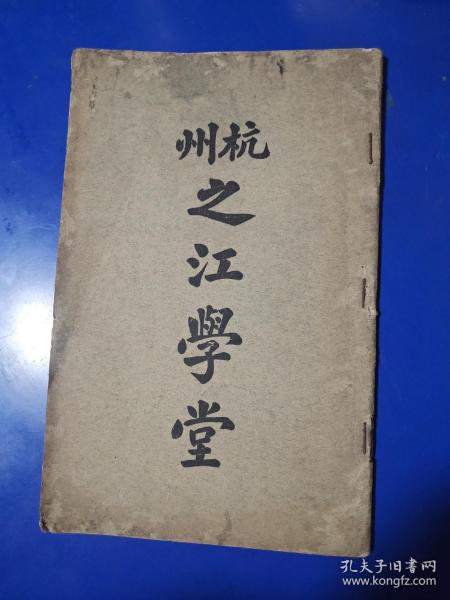 杭州
之江學堂
孔夫子旧书网
www.kongfz.com